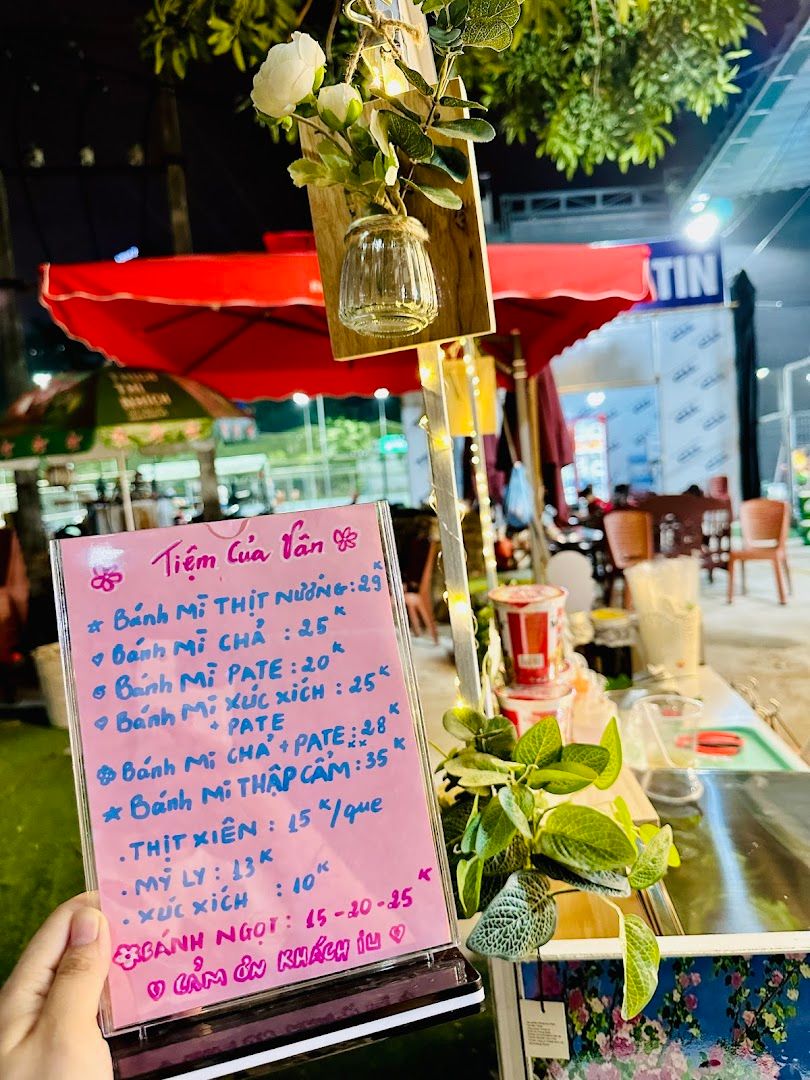 TIN
Tiệm Của Vân
Bánh Mì THỊT NƯỚNG : 29K
Bánh Mì CHẢ : 25K
Bánh Mì PATE : 20K
Bánh Mì XÚC XÍCH : 25K
+ PATE
Bánh Mì CHẢ + PATE : 28K
Bánh Mì THẬP CẨM : 35K
. THỊT XIÊN : 15K/que
. MỲ LY : 13K
. XÚC XÍCH : 10K
BÁNH NGỌT : 15 - 20 - 25K
CẢM ƠN KHÁCH IU